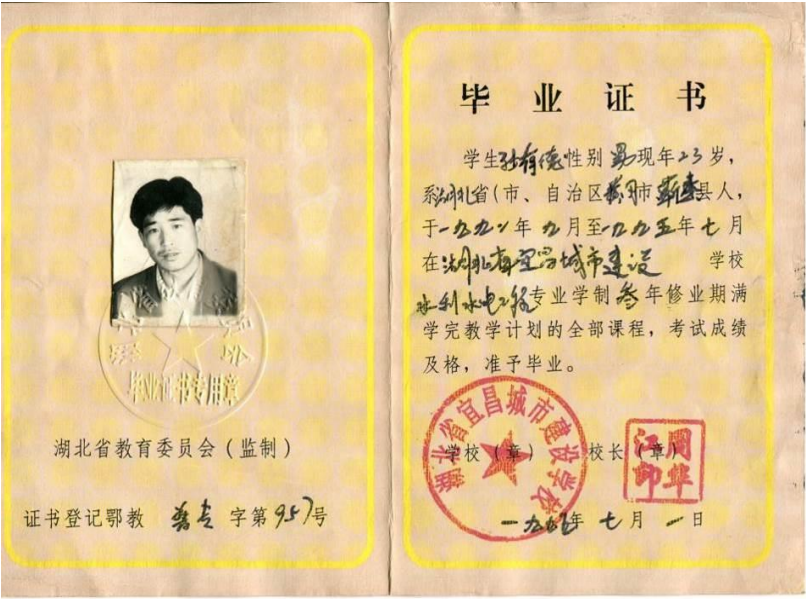 毕业证书专用章
湖北省教育委员会(监制)
证书登记鄂教 普专 字第957号
毕业证书
学生 有德性别男现年23岁,
系湖北省(市、自治区 市 县人,
于一九九 年九月至一九九五年七月
在湖北省宜昌城市建设 学校
水利水电工程专业学制叁年修业期满
学完教学计划的全部课程,考试成绩
及格,准予毕业。
湖北省宜昌城市建设学校
学校(章) 校长(章)
一九九五年七月一日